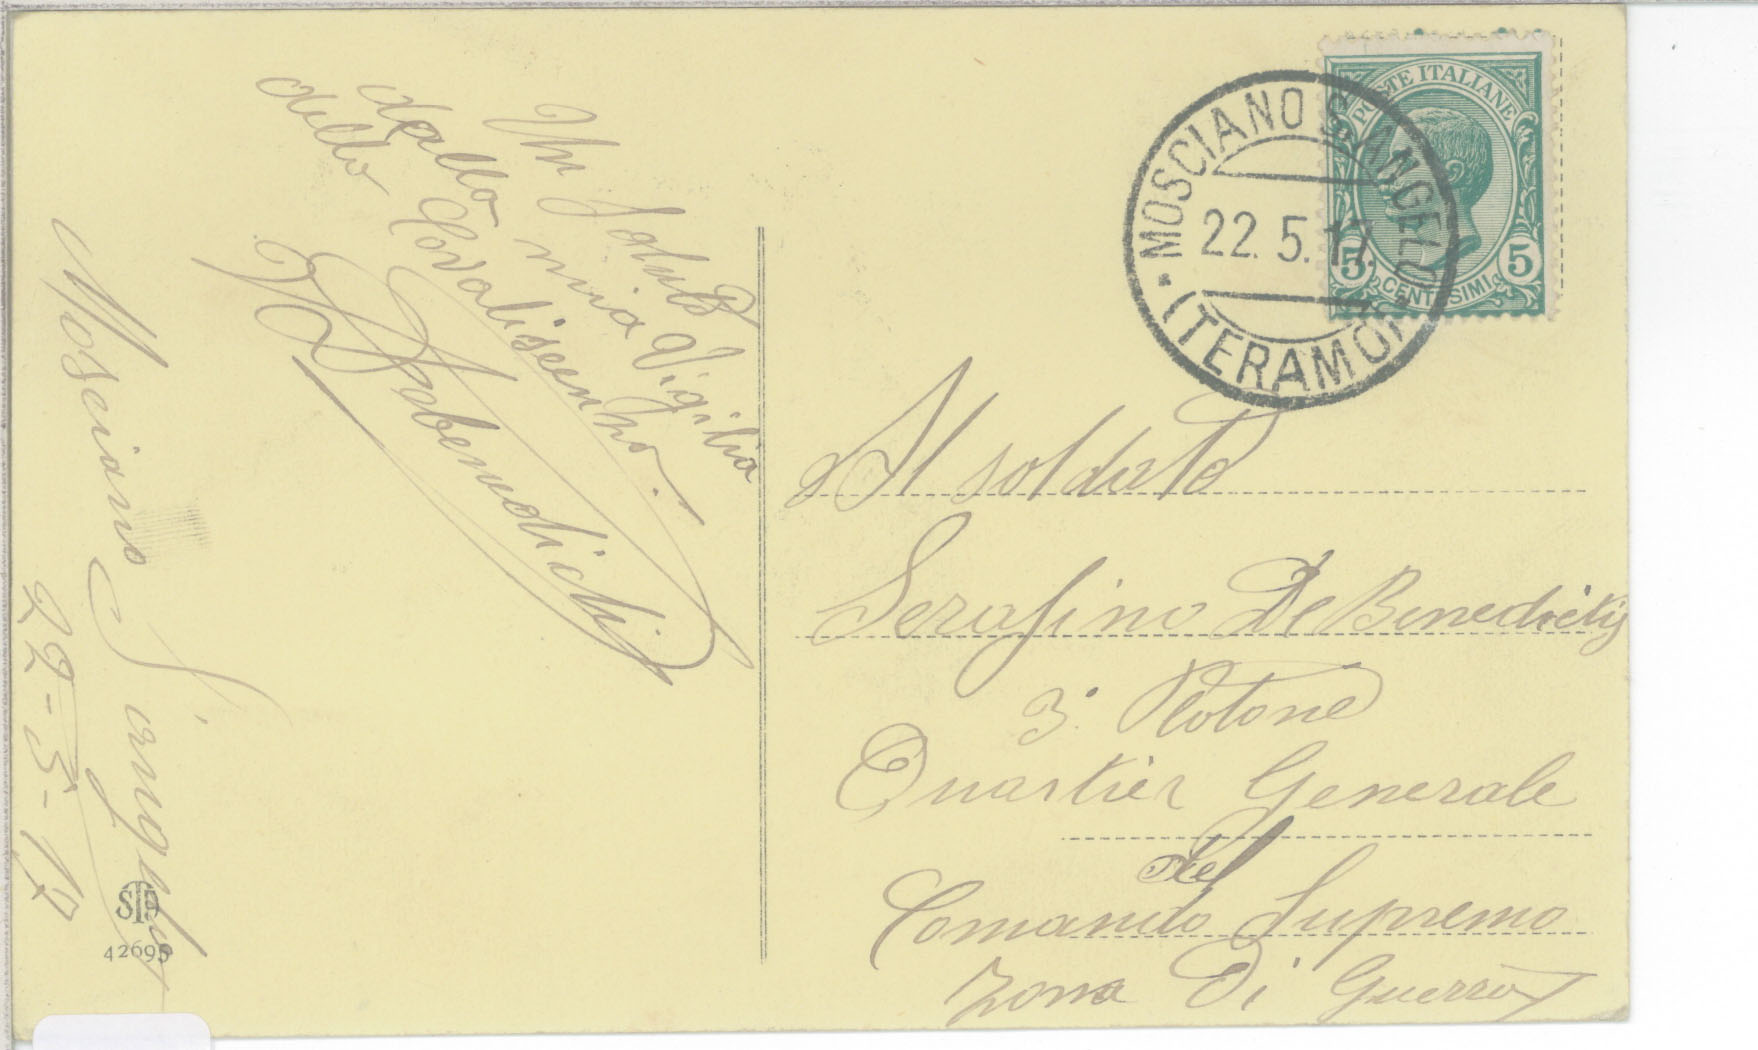 POSTE ITALIANE
5 5
CENTESIMI
MOSCIANO S. ANGELO
22.5.17.
(TERAMO)
Un Saluto
dalla mia Vigilia
dello
Mosciano S. Angelo
22-5-17
Al soldato
Serafino De Benedictis
3° Plotone
Quartier Generale
del
Comando Supremo
Zona Di Guerra
STD
42695